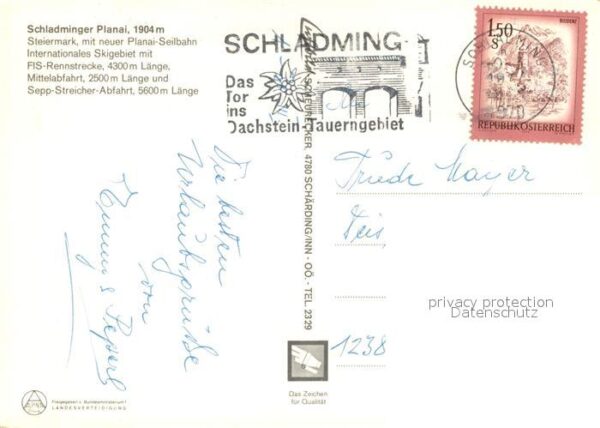 Schladminger Planai, 1904 m
Steiermark, mit neuer Planai-Seilbahn
Internationales Skigebiet mit
FIS-Rennstrecke, 4300 m Länge,
Mittelabfahrt, 2500 m Länge und
Sepp-Streicher-Abfahrt, 5600 m Länge
SCHLADMING
Das
Tor
ins
Dachstein-Tauerngebiet
1.50
S
BLUDENZ
REPUBLIK ÖSTERREICH
4780 SCHÄRDING/INN - OÖ. - TEL. 2329
Die besten
Urlaubsgrüße
von
Emmy & Peperl
Mayer
1238
privacy protection
Datenschutz
Das Zeichen
für Qualität
LANDESVERTEIDIGUNG